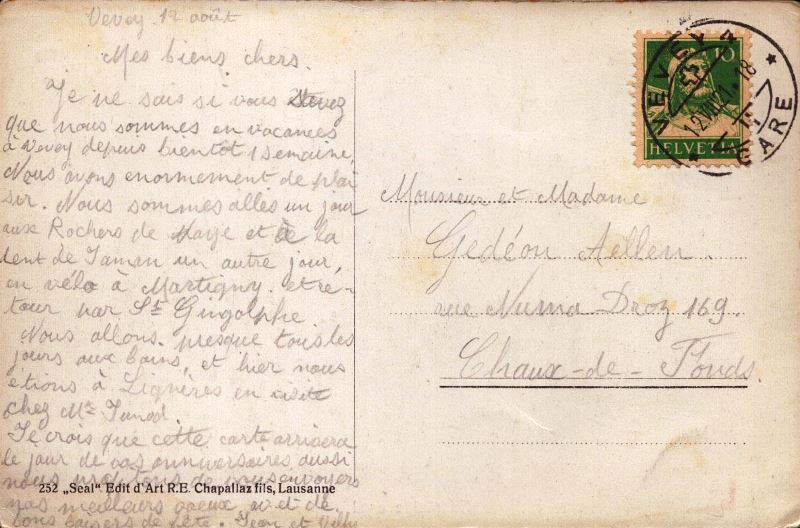 Vevey 12 août
Mes biens chers.
Je ne sais si vous savez
que nous sommes en vacances
à Vevey depuis bientôt 1 semaine.
Nous avons enormement de plai
sir. Nous sommes allés un jour
aux Rochers de Naye et à la
dent de Jaman un autre jour,
en vélo à Martigny. et re-
tour par St Gingolphe
Nous allons presque tous les
jours aux bains, et hier nous
étions à Lignères en visite
chez Mr Junod.
Je crois que cette carte arrivera
le jour de vos anniversaires, aussi
nous profitons de vous envoyer
nos meilleurs voeux et de
bons baisers de fête. Jean et Willy
252 „Seal“ Edit d'Art R.E. Chapallaz fils, Lausanne
VEVEY 4
12.VIII.21.18
GARE
10
HELVETIA
Monsieur et Madame
Gedéon Aellen.
rue Numa Droz 169.
Chaux-de-Fonds.